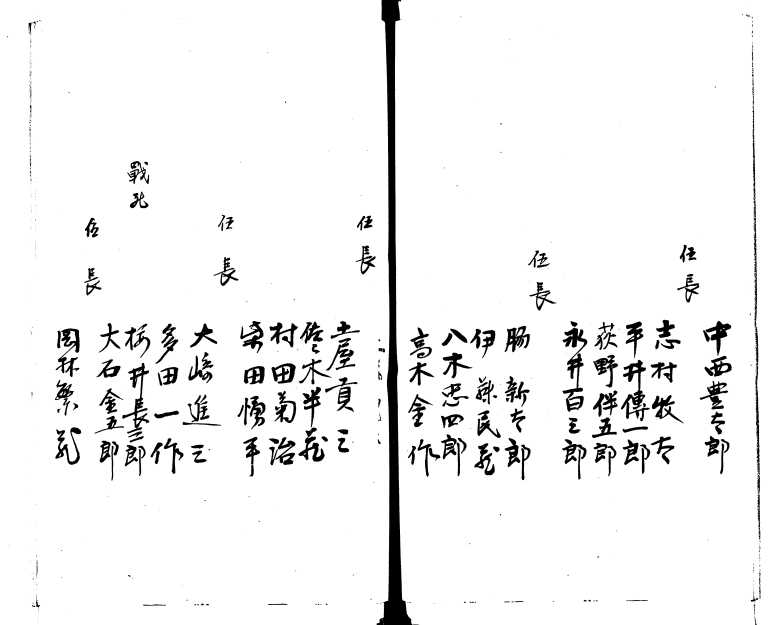 中西豊太郎
伍長 志村牧太
平井傳一郎
荻野伴五郎
永井百三郎
伍長 腸新太郎
伊藤民蔵
八木忠四郎
高木金作
伍長 土屋貢三
佐々木半蔵
村田菊治
柴田勇平
伍長 大嶋進三
多田一作
戰死 桜井長三郎
大石金五郎
伍長 岡林繁蔵